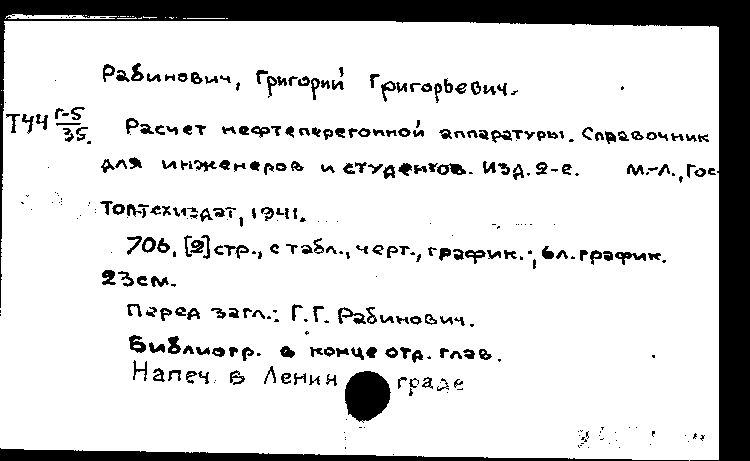 Рабинович, Григорий Григорьевич.
Т44 Г-5/35. Расчет нефтеперегонной аппаратуры. Справочник
для инженеров и студентов. Изд. 2-е. М.-Л., Гос-
топтехиздат, 1941.
706, [2] стр., с табл., черт., график.; 6 л. график.
23 см.
Перед загл.: Г.Г. Рабинович.
Библиогр. в конце отр. глав.
Напеч. в Ленинграде